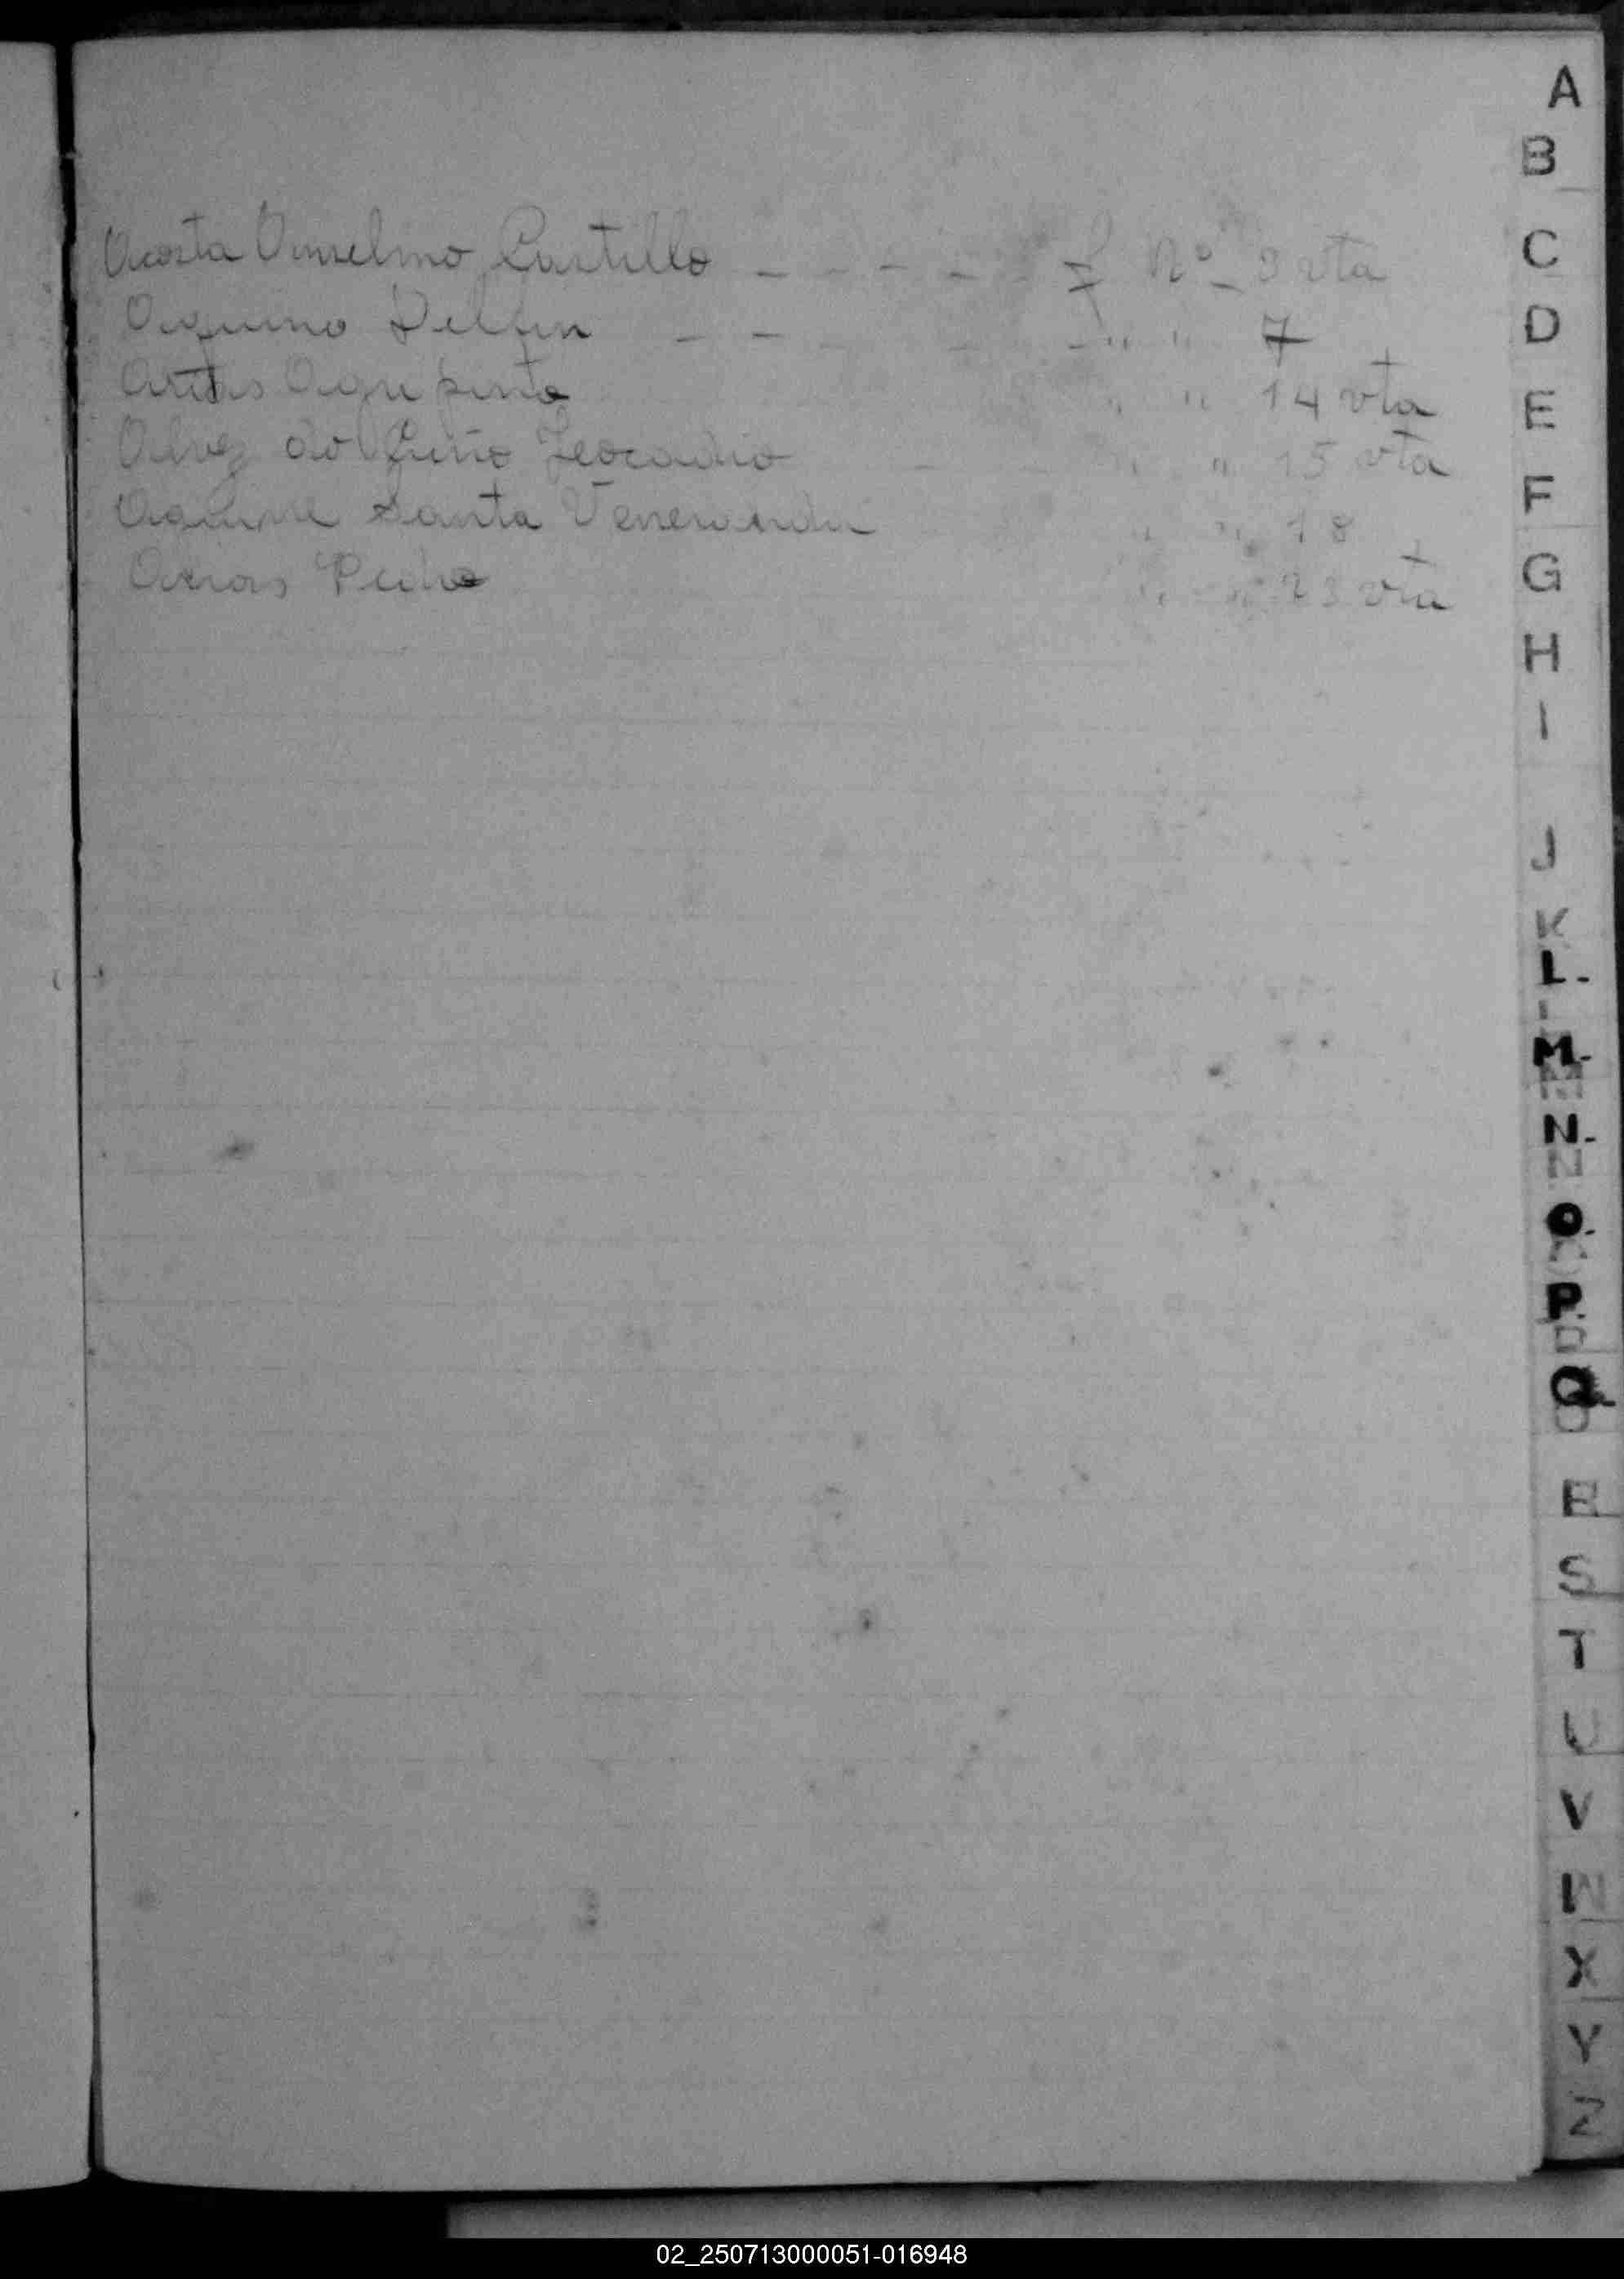 Acosta Anselmo Castillo - - - - f Nº 3 vta
Aquino Delfin - - - - - " " 7
Artas Agripina " " 14 vta
Alvez do Leocadio " " 15 vta
Aquine Santa Veneranda " " 18
Arias Pedro " " 23 vta
A
B
C
D
E
F
G
H
I
J
K
L.
M.
N.
O.
P.
Q
R
S
T
U
V
W
X
Y
Z
02_250713000051-016948